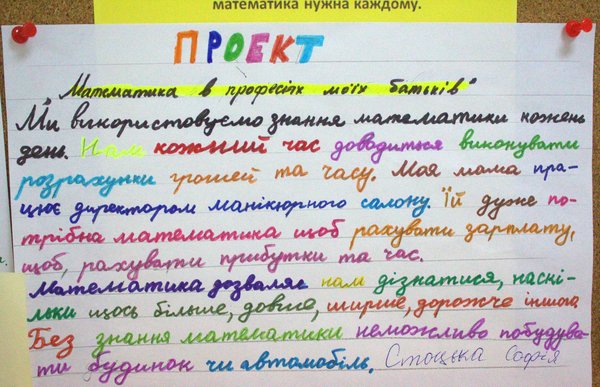 математика нужна каждому.
ПРОЕКТ
"Математика в професіях моїх батьків"
Ми використовуємо знання математики кожень
день. Нам кожний час доводиться виконувати
розрахунки грошей та часу. Моя мама пра-
цює директором манікюрного салону. Їй дуже по-
трібна математика щоб рахувати зарплату,
щоб, рахувати прибутки та час.
Математика дозваляє нам дізнатися, наскі-
льки щось більше, довше, ширше, дорожче іншого
Без знання математики неможливо побудува-
ти будинок чи автомобіль. Стоцька Софія